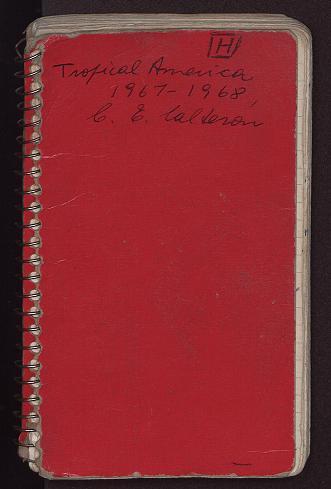 H
Tropical America
1967-1968,
C. E. Calderon